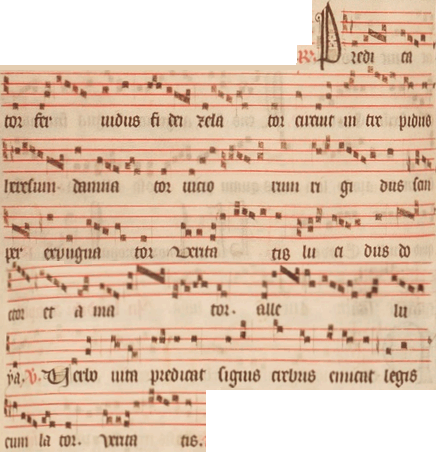 R. Predica
tor fervidus fidei zelator circuit intrepidus
heresum damnator viciorum rigidus sem
per expugnator veritatis lucidus do
ctor et amator. allelu
ya. V. Verbo vita predicat signis crebris emicat legis
cum lator. veritatis.